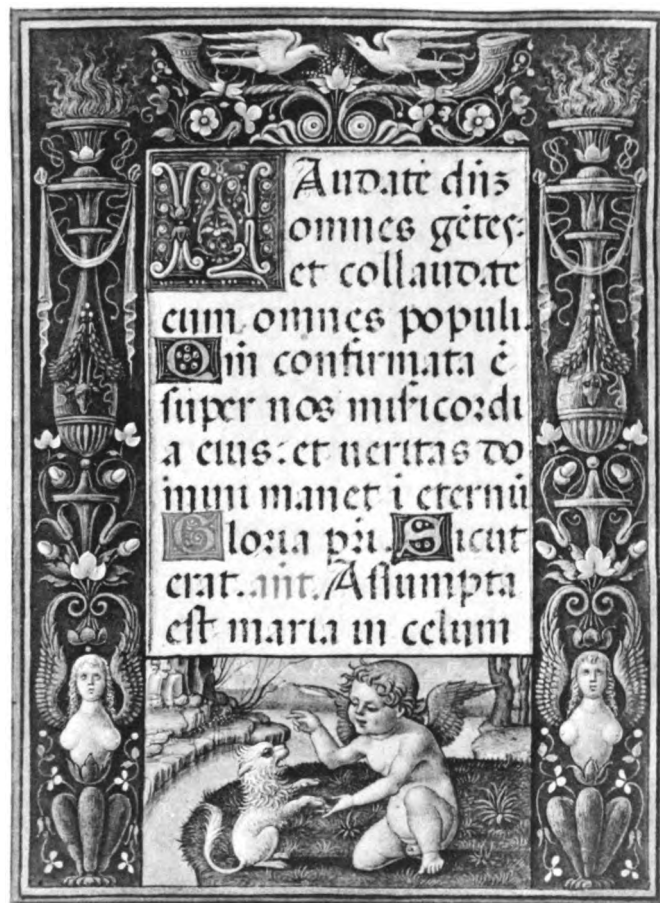 LAudate dn̄ꝫ
omnes gētes:
et collaudate
eum omnes populi.
Qm̄ confirmata ē
super nos misicordi
a eius: et ueritas do
mini manet i eternū
Gloria pr̄i. Sicut
erat. an̄t. Assumpta
est maria in celum